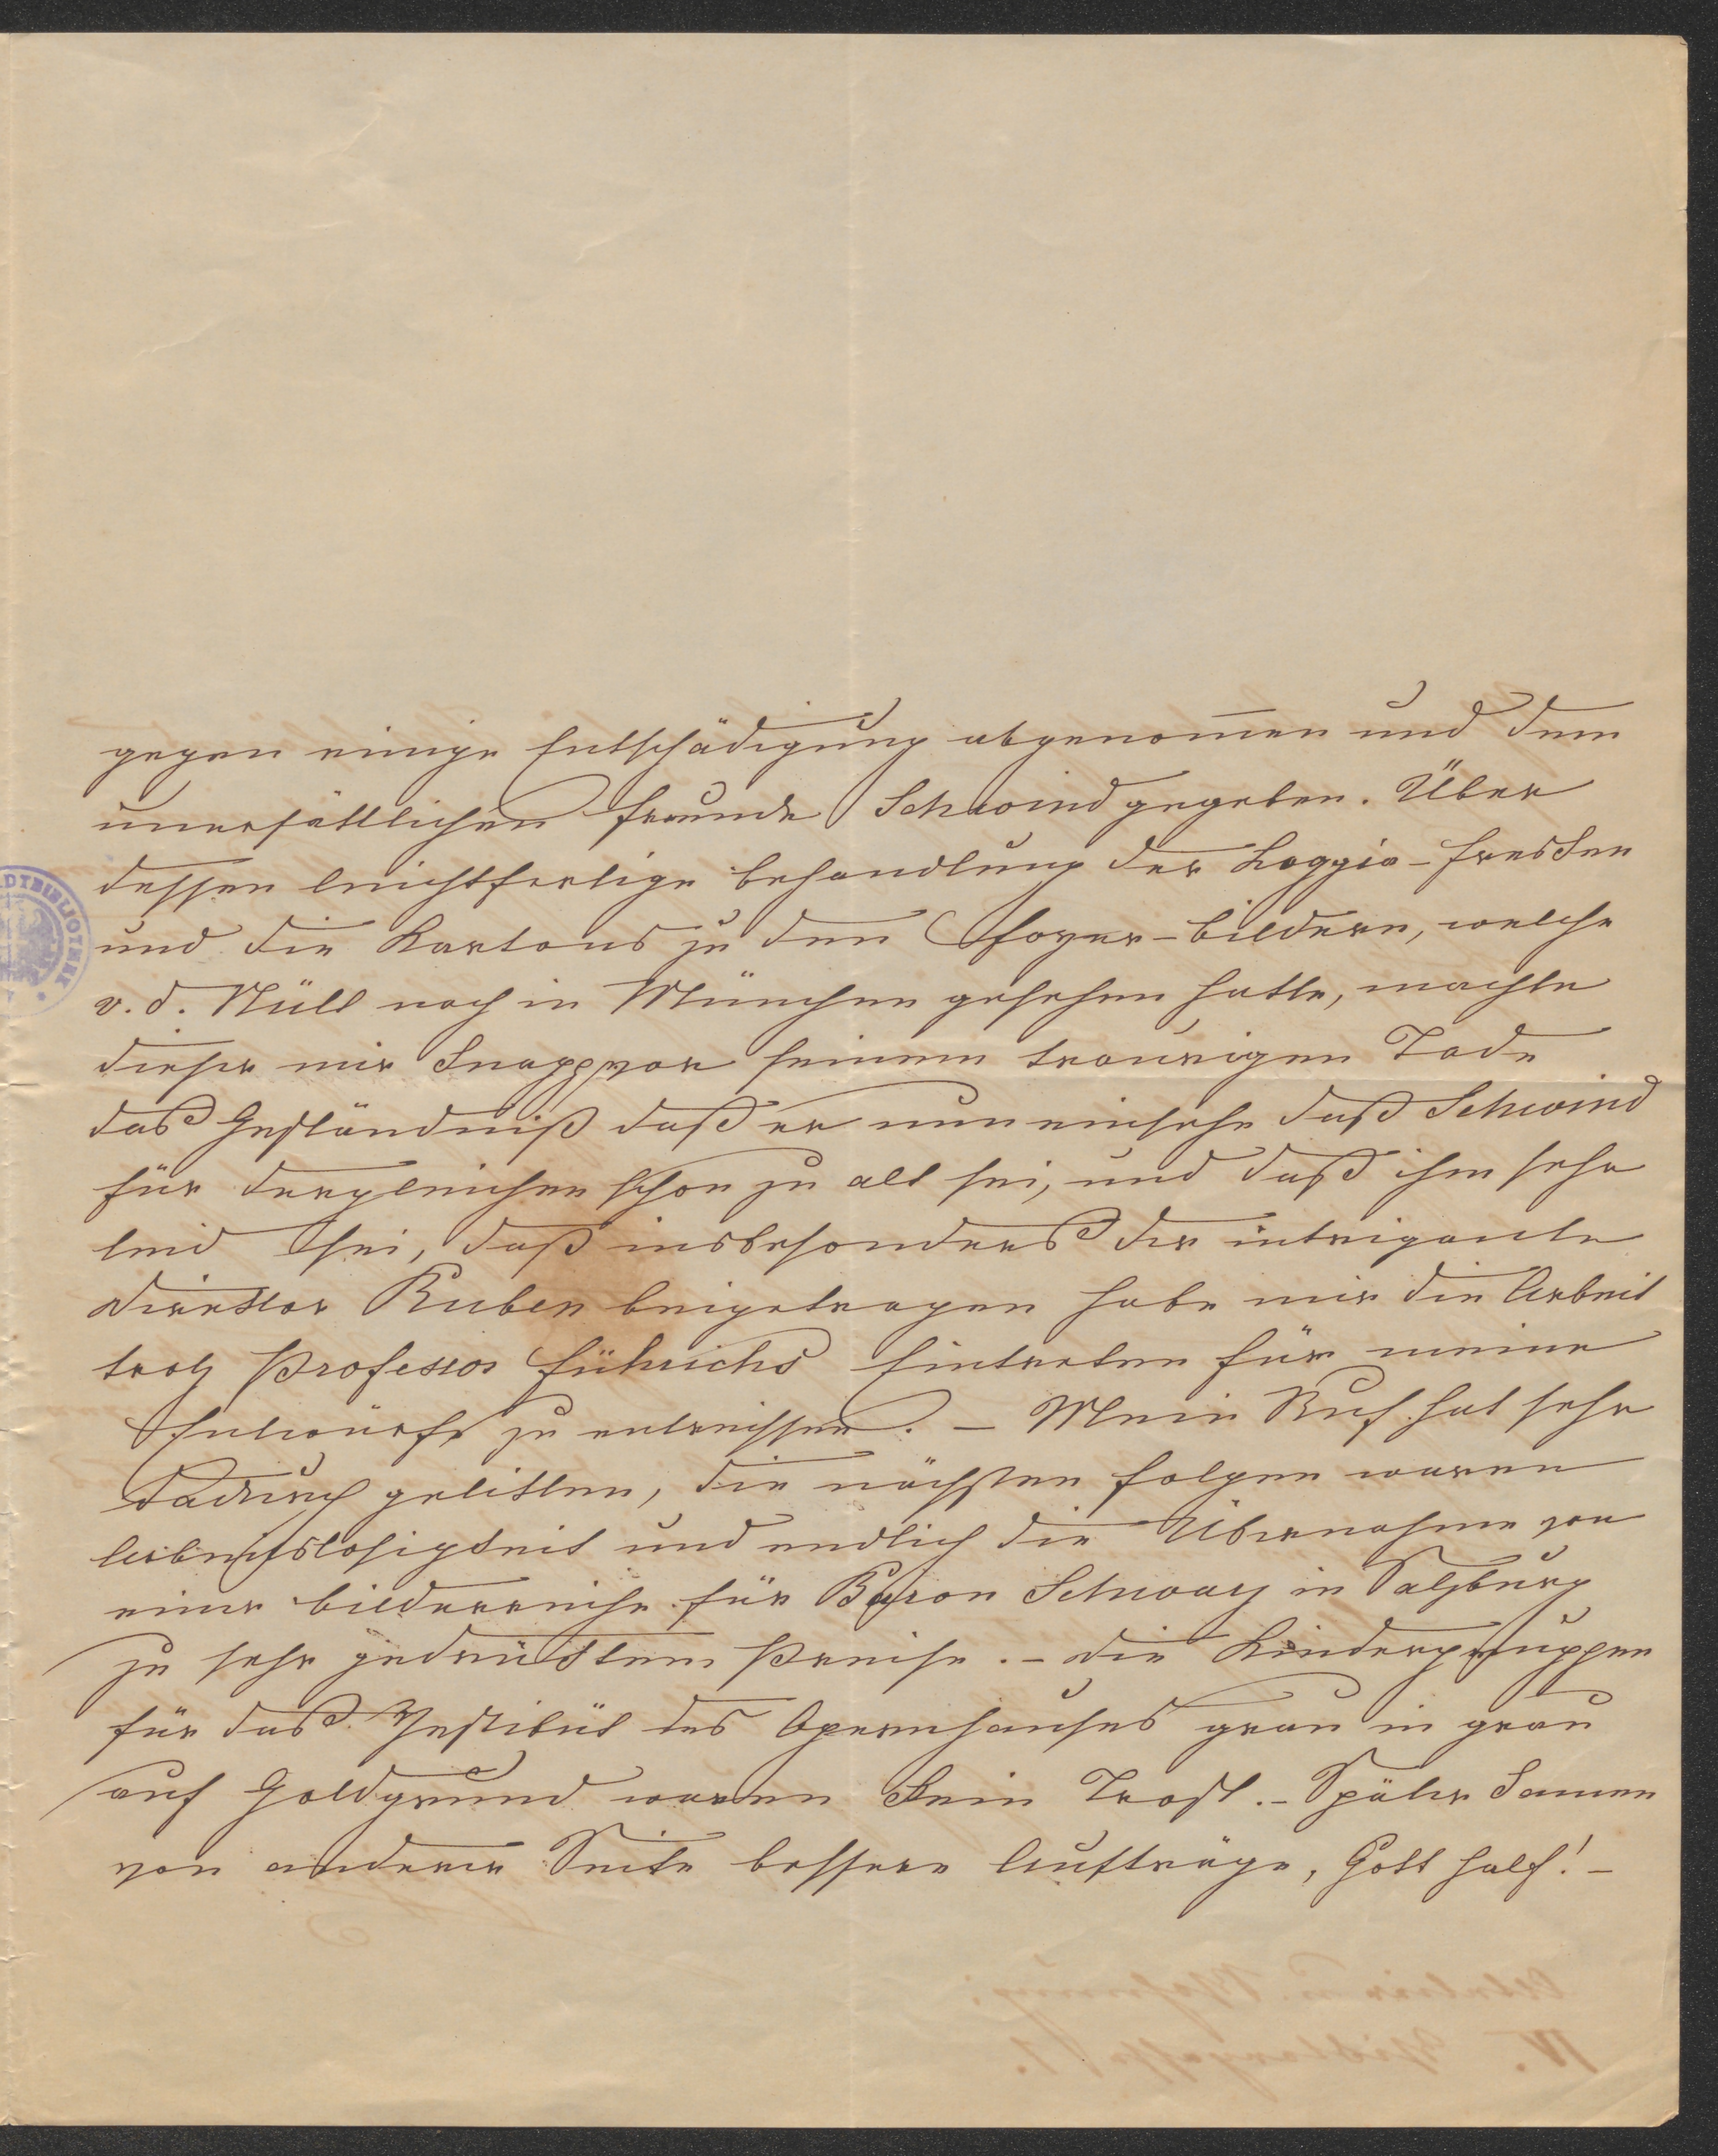 gegen einige Entschädigung abgenom̅en und dem
unersättlichen Freunde Schwind gegeben. Über
dessen leichtfertige Behandlung der Loggia-Fresken
und die Kartons zu den Foyer-Bildern, welche
v. d. Nüll noch in München gesehen hatte, machte
dieser mir knapp vor seinem traurigen Tode
das Geständniß daß er nun einsehe daß Schwind
für dergleichen schon zu alt sei, und daß ihm sehr
leid sei, daß insbesonders der intrigante
Direktor Ruben beigetragen habe mir die Arbeit
trotz Professor Führichs Eintreten für meine
Entwürfe zu entreissen. – Mein Ruf hat sehr
dadurch gelitten, die nächsten Folgen waren
Arbeitslosigkeit und endlich die Übernahme von
einer Bilderreihe für Baron Schwarz in Salzburg
zu sehr gedrücktem Preise. – Die Kindergruppen
für das Vestibül des Opernhauses grau in grau
auf Goldgrund waren kein Trost. – Später kamen
von anderer Seite bessere Aufträge, Gott half! –